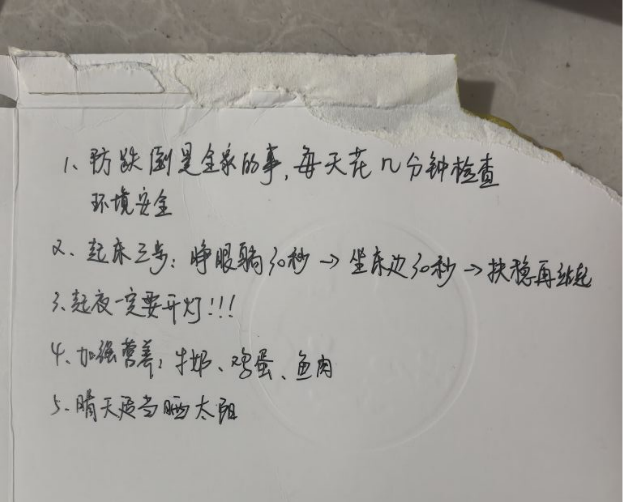 1、防跌倒是全家的事,每天花几分钟检查
环境安全
2、起床三步:睁眼躺30秒→坐床边30秒→扶稳再站起
3、起夜一定要开灯!!!
4、加强营养:牛奶、鸡蛋、鱼肉
5、晴天适当晒太阳